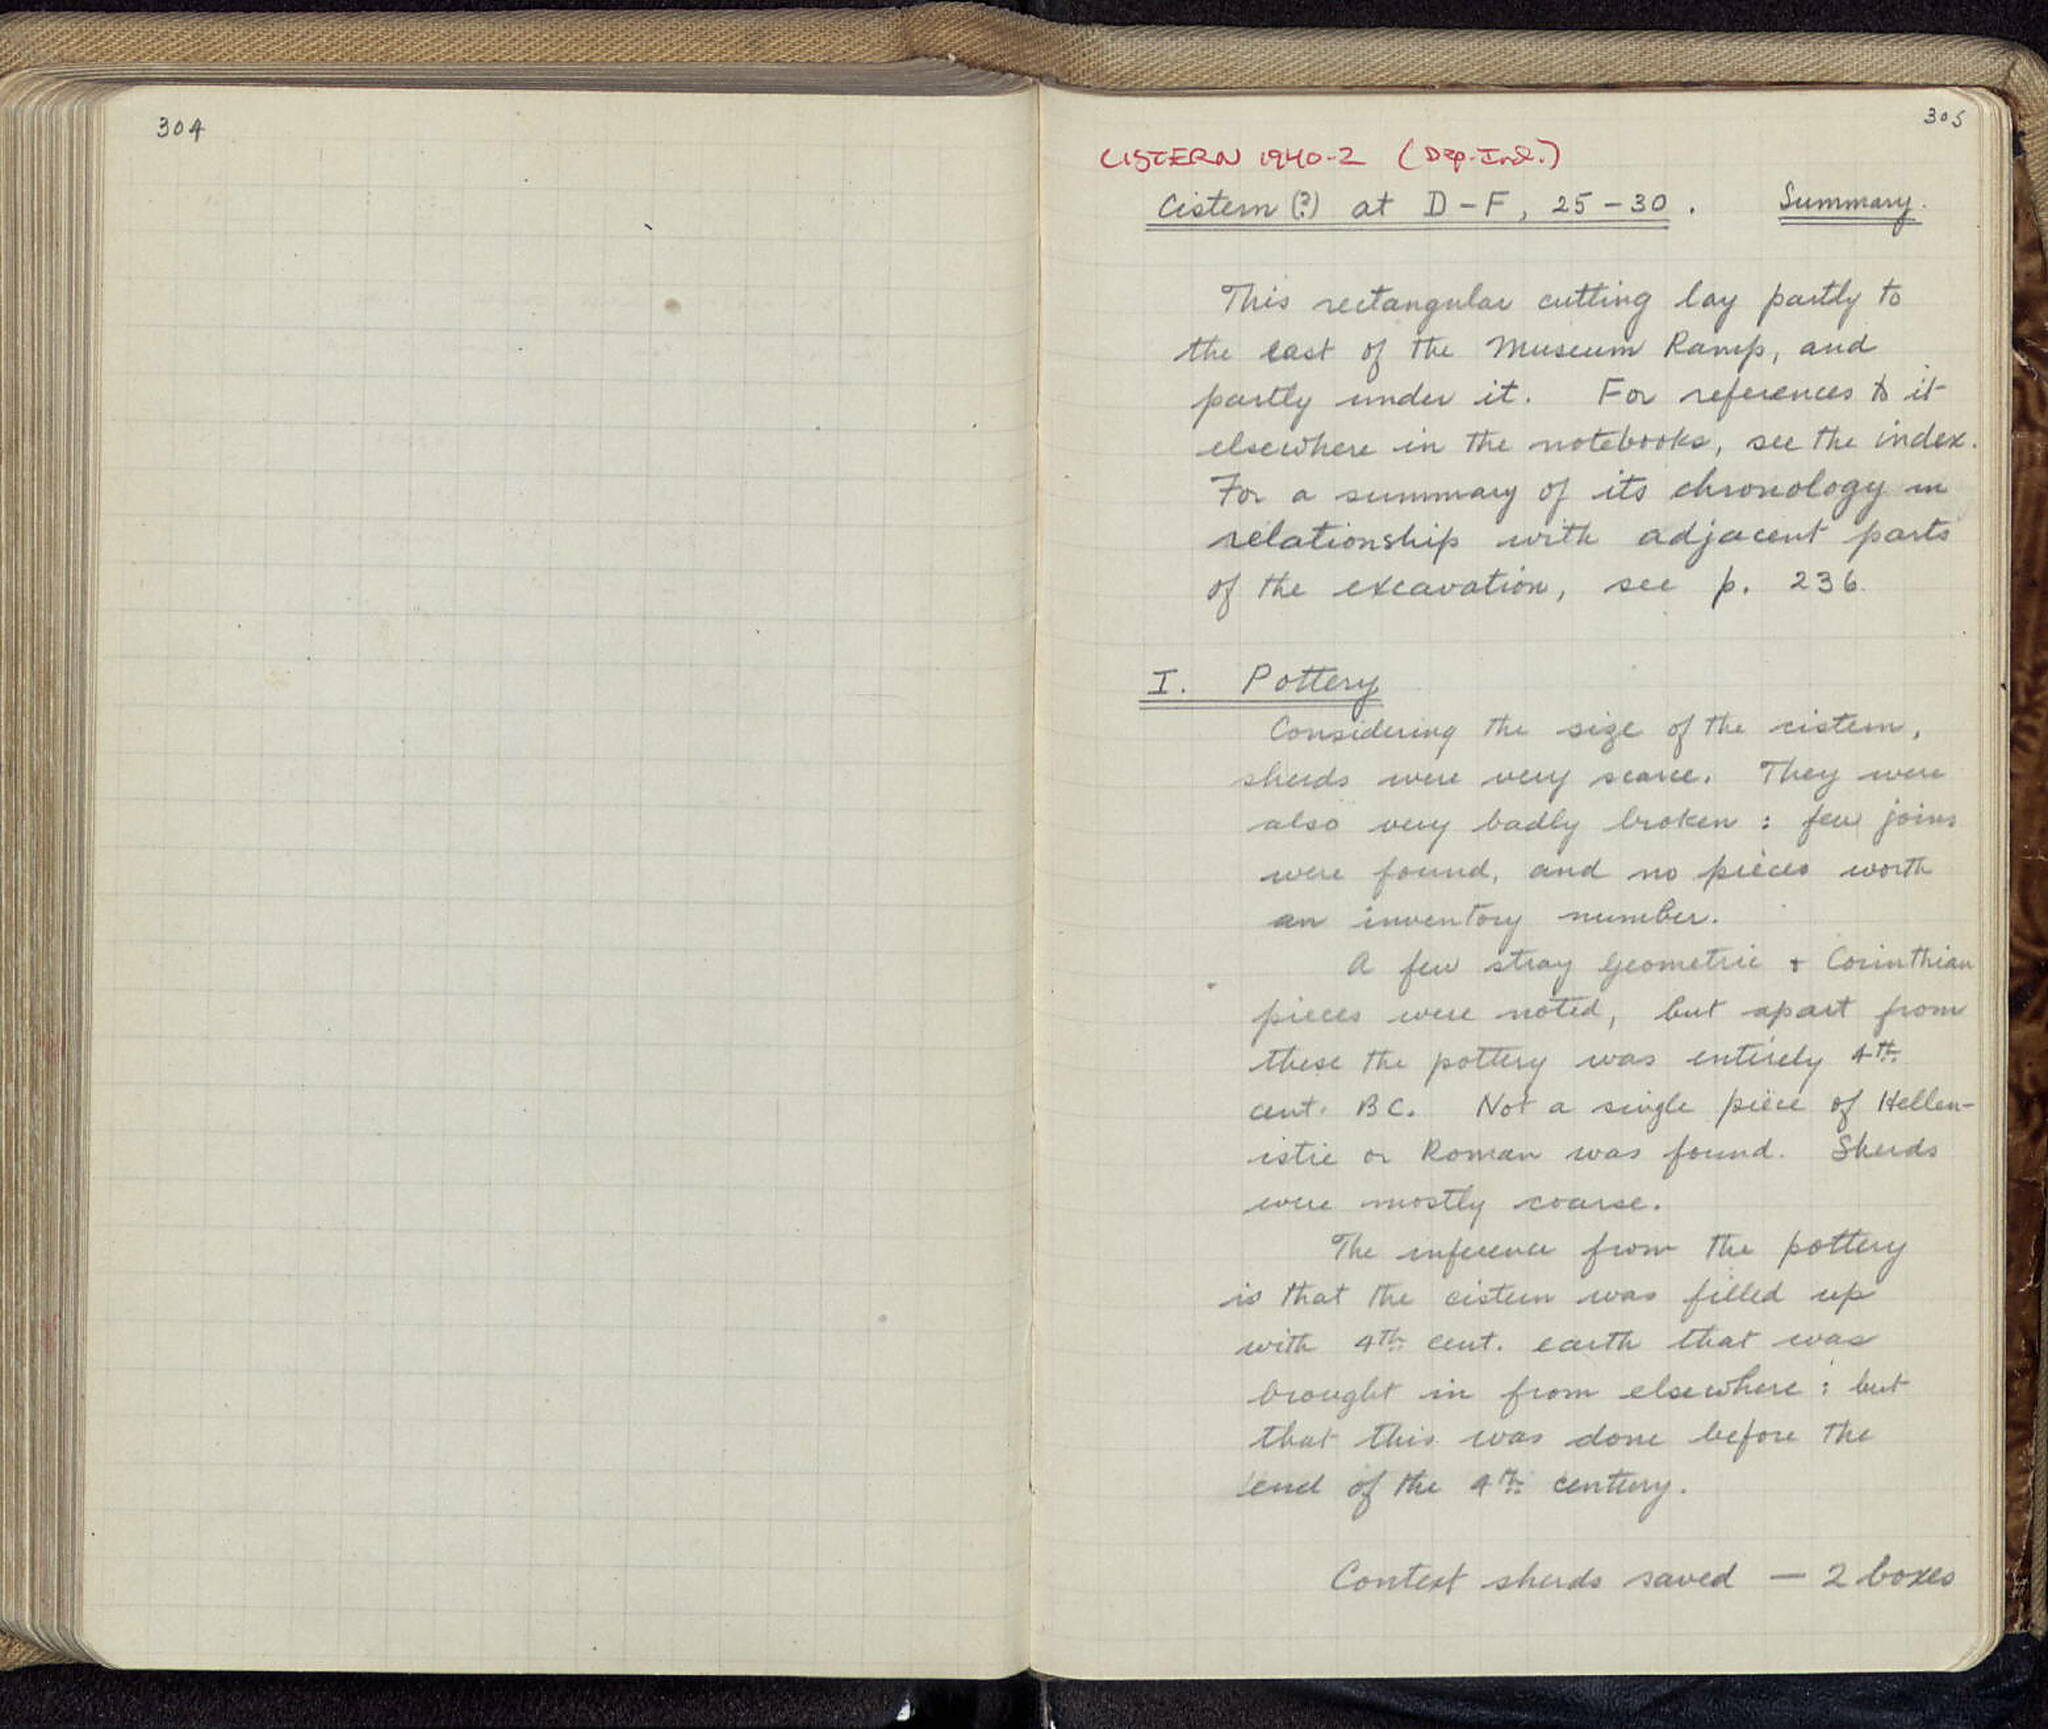 304
305
CISTERN 1940-2 (Dep. Ind.)
Cistern (?) at D-F, 25-30. Summary.
This rectangular cutting lay partly to
the east of the Museum Ramp, and
partly under it. For references to it
elsewhere in the notebooks, see the index.
For a summary of its chronology in
relationship with adjacent parts
of the excavation, see p. 236.
I. Pottery
Considering the size of the cistern,
sherds were very scarce. They were
also very badly broken: few joins
were found, and no pieces worth
an inventory number.
A few stray Geometric + Corinthian
pieces were noted, but apart from
these the pottery was entirely 4th
cent. BC. Not a single piece of Hellen-
istic or Roman was found. Sherds
were mostly coarse.
The inference from the pottery
is that the cistern was filled up
with 4th cent. earth that was
brought in from elsewhere: but
that this was done before the
end of the 4th century.
Context sherds saved — 2 boxes